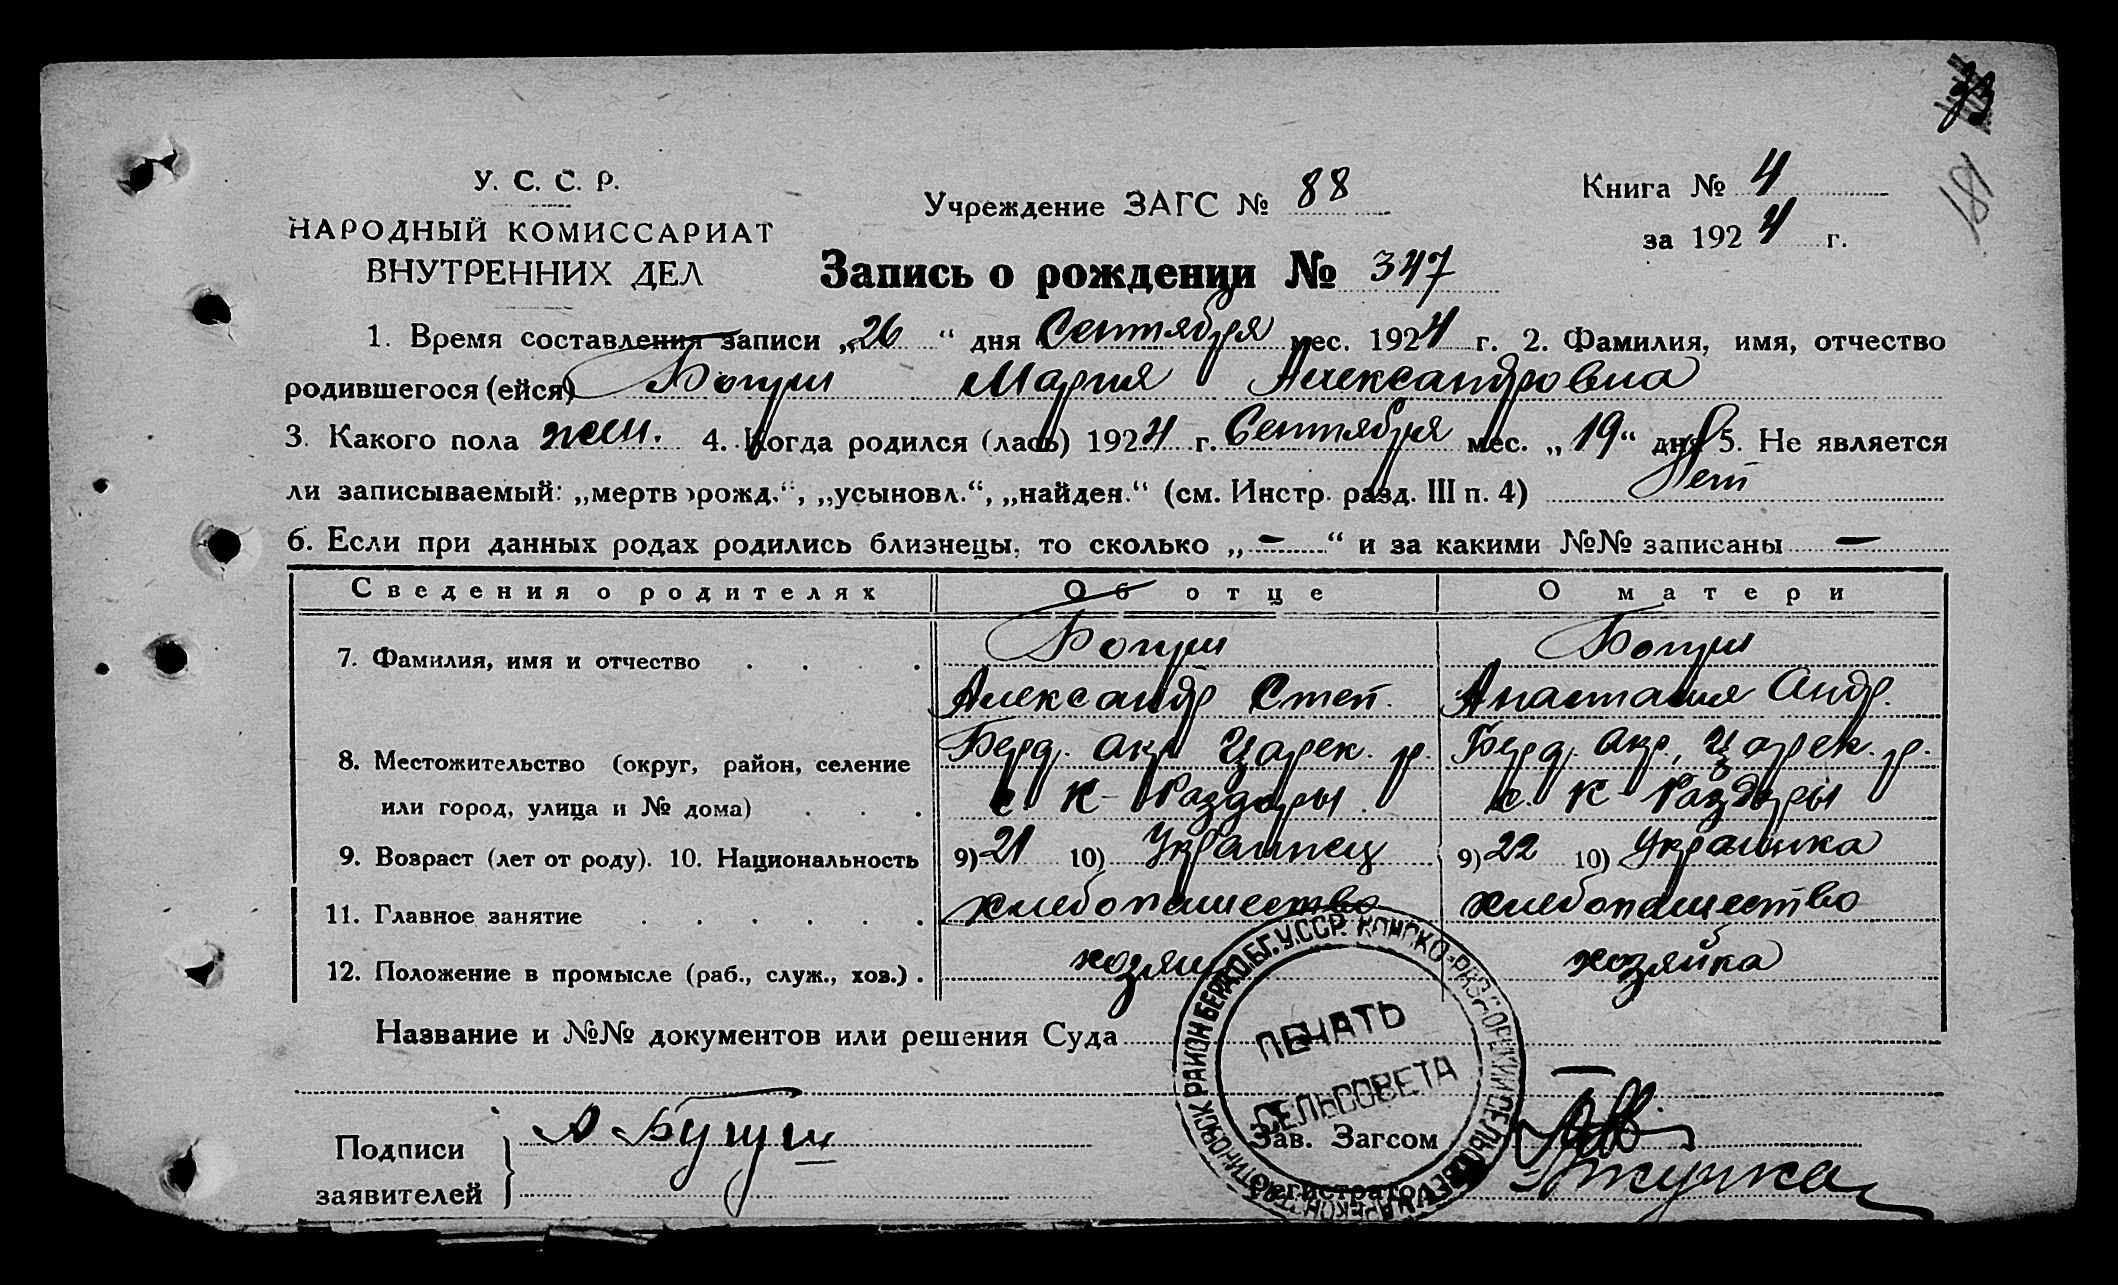 181
У. С. С. Р.
НАРОДНЫЙ КОМИССАРИАТ
ВНУТРЕННИХ ДЕЛ
Учреждение ЗАГС № 88
Книга № 4
за 1924 г.
Запись о рождении № 347
1. Время составления записи „26“ дня Сентября мес. 1924 г. 2. Фамилия, имя, отчество
родившегося (ейся) Богуш Мария Александровна
3. Какого пола жен. 4. Когда родился (лась) 1924 г. Сентября мес. „19“ дня 5. Не является
ли записываемый: „мертворожд.“, „усыновл.“, „найден.“ (см. Инстр. разд. III п. 4) Нет
6. Если при данных родах родились близнецы, то сколько „-“ и за какими №№ записаны -
Сведения о родителях Об отце О матери
7. Фамилия, имя и отчество Богуш Богуш
Александр Степ. Анастасия Андр.
8. Местожительство (округ, район, селение Берд. окр. Царек. р. Берд. окр., Царек. р.
или город, улица и № дома) с. К-Раздоры с. К-Раздоры
9. Возраст (лет от роду). 10. Национальность 9) 21 10) Украинец 9) 22 10) Украинка
11. Главное занятие хлебопашество хлебопашество
12. Положение в промысле (раб., служ., хоз.) хозяин хозяйка
Название и №№ документов или решения Суда
ПЕЧАТЬ
СЕЛЬСОВЕТА
РАЙОН БЕРД.ОБГ. У.ССР. КОНСКО-РАЗДОРСКИЙ СЕЛЬ
Подписи
заявителей
А Бугуш
Зав. Загсом
Регистратор